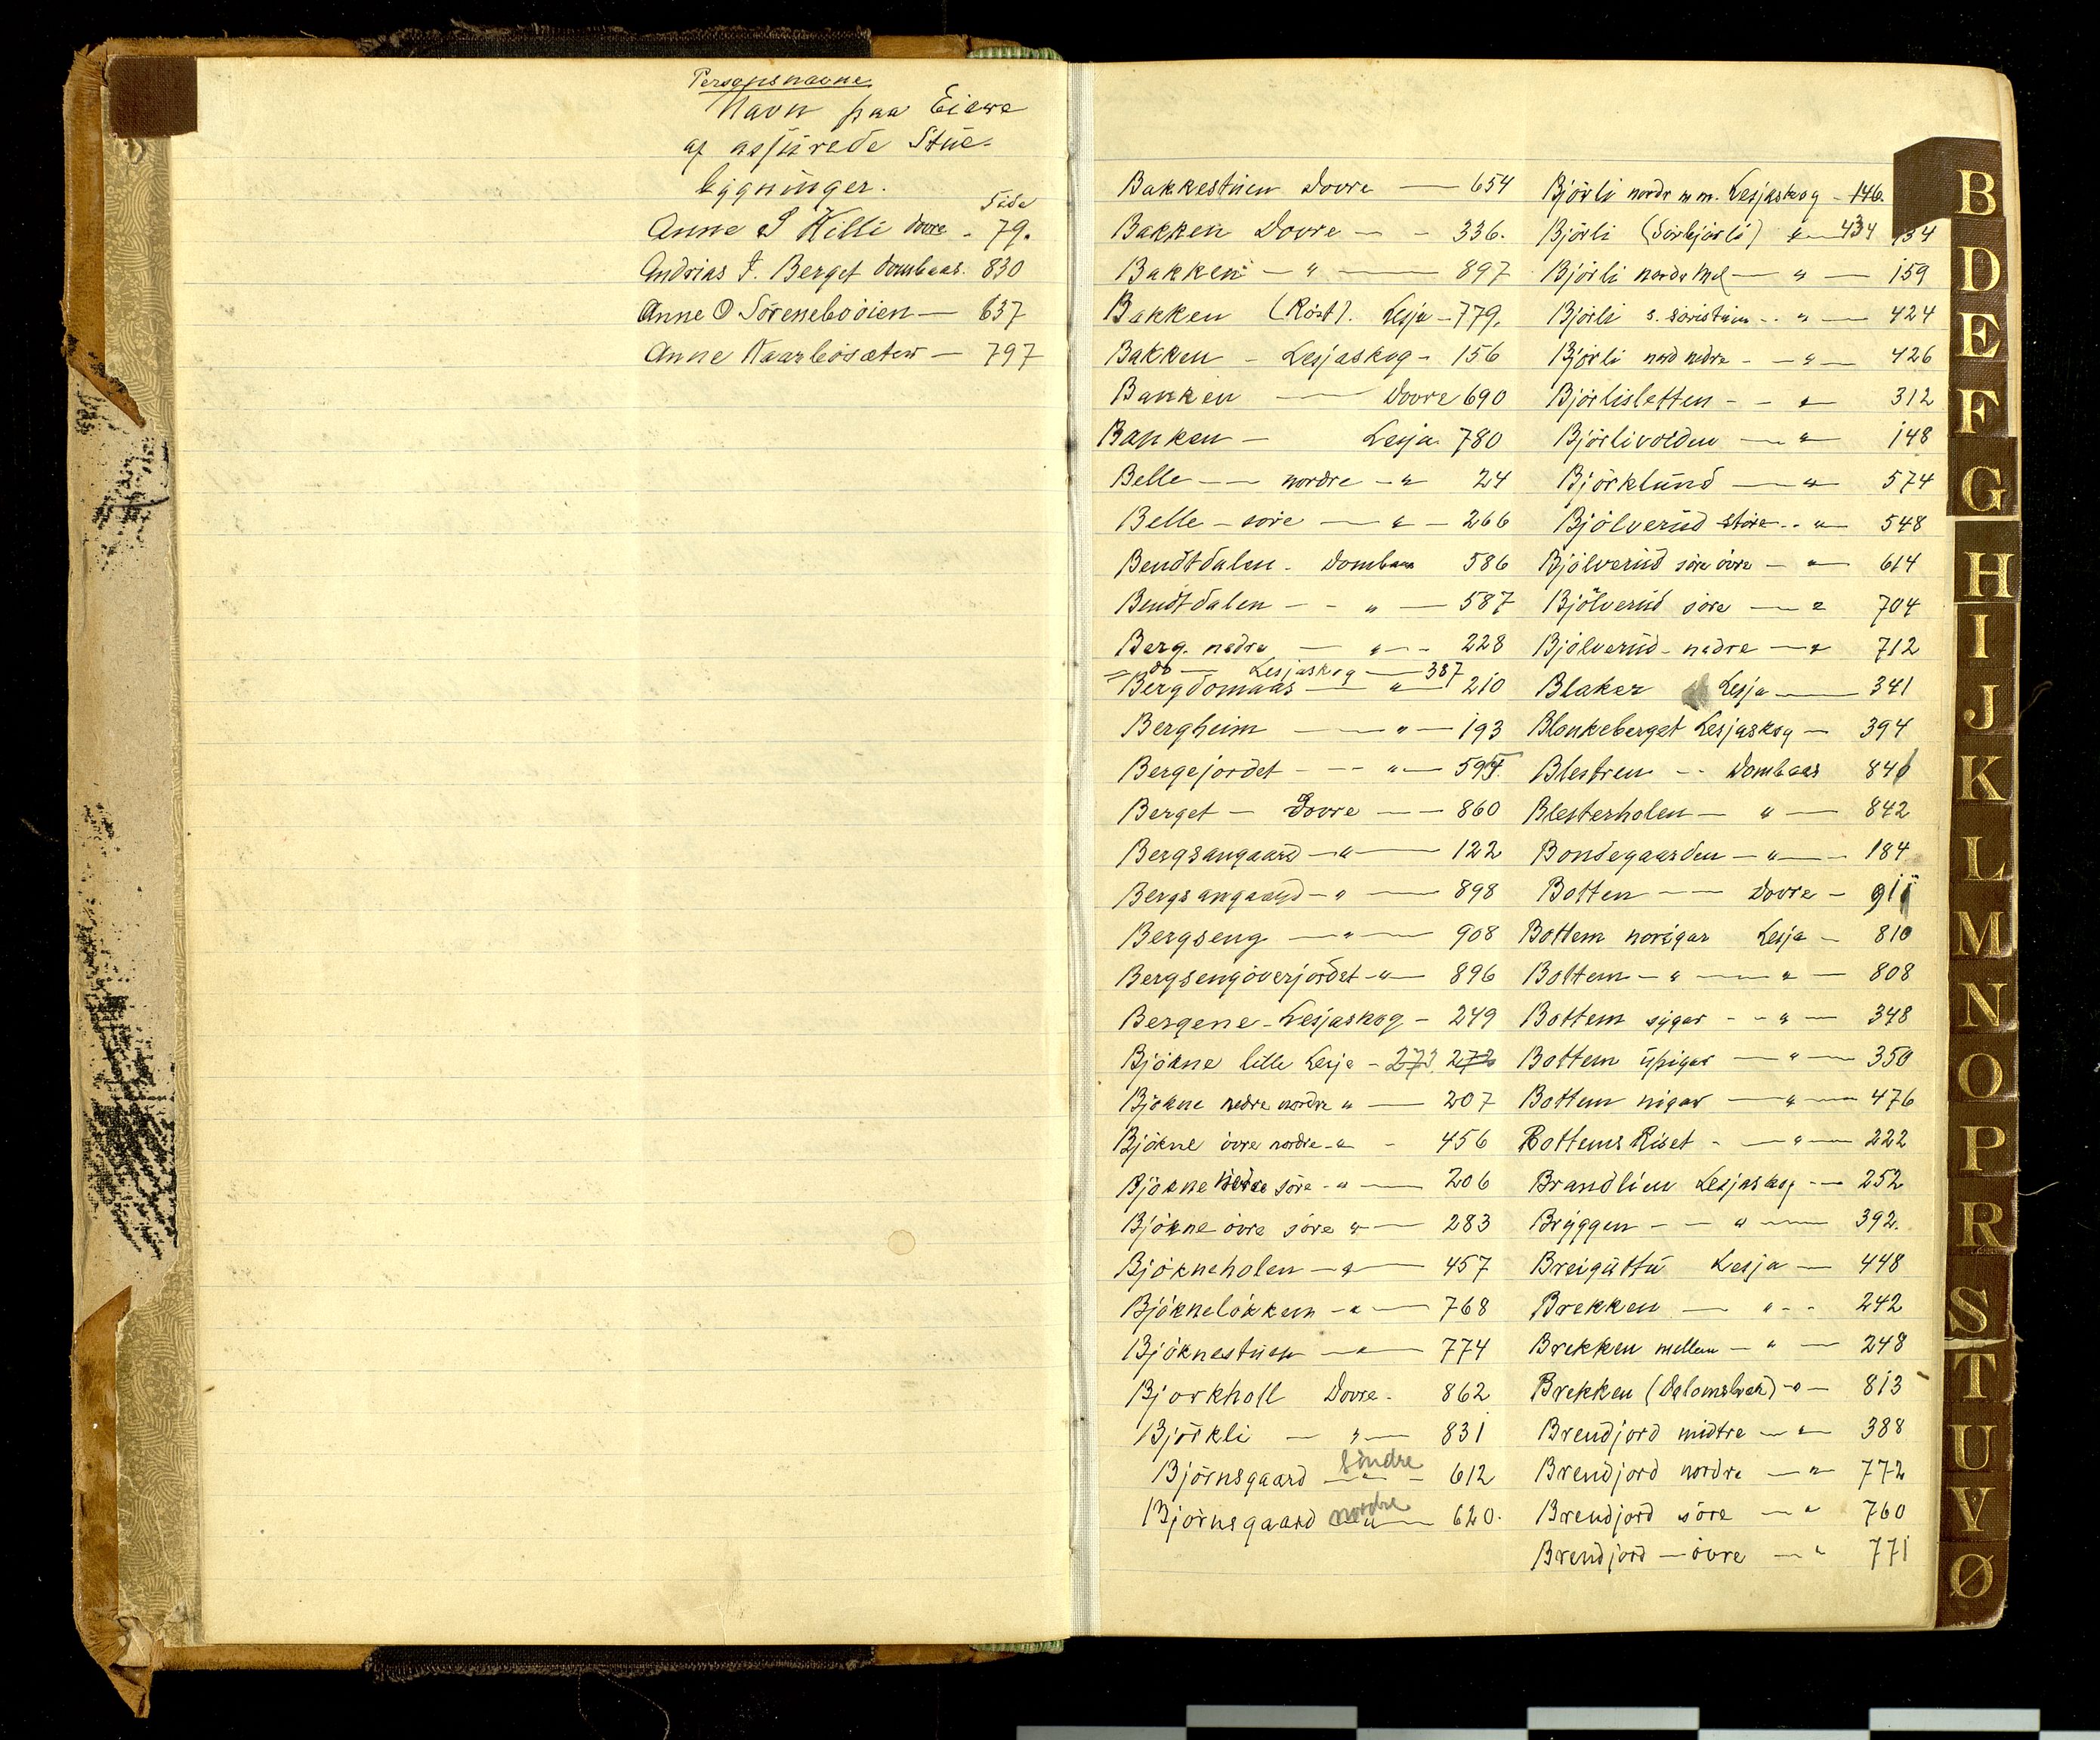 Personsnavne
Navn paa Eiere
af assürede Stüe-
bygninger.
Side
Anne S Killi Dovre - 79.
Andrias J. Berget Dombaas. 830
Anne O Sörenebööien — 637
Anne Kaarbösæter — 797
Bakkestüen Dovre — 654
Bakken Dovre - - 336.
Bakken — " — 897
Bakken (Röst). Lesja - 779.
Bakken - Lesjaskog - 156
Banken — Dovre 690
Banken — Lesja 780
Belle — nordre - " 24
Belle - söre — " - 266
Bendtdalen - Dombaas 586
Bendtdalen - - " — 587
Berg. nedre — " - - 228
" do — Lesjaskog — 387
Bergdomaas — " — 210
Bergheim — " — 193
Bergejordet - - - " — 595.
Berget — Dovre — 860
Bergsangaard — " — 122
Bergsangaard - " — 898
Bergseng — " — 908
Bergsengöverjordet - " — 896
Bergene - Lesjaskog - 249
Bjökne lille Lesja - 273. 272
Bjökne nedre nordre " — 207
Bjökne övre nordre - " - 456
Bjökne nedre söre - " — 206
Bjökne övre söre " — 283
Bjökneholen — " — 457
Bjökneløkken - " — 768
Bjöknestüen — " — 774
Bjorkholl Dovre - 862
Björkli — " — 831
Björnsgaard söndre — " - 612
Björnsgaard nordre — " — 620.
Björli nordr m m. Lesjaskog - 146.
Björli (Sörbjörli) " — 434 134
Björli nordr — " — 159
Björli s. söristuen - . " — 424
Björli nord nedre - — " — 426
Björlisletten - - " 312
Björlivolden — " — 148
Björklünd — " — 574
Bjölverüd store - . " — 548
Bjölverüd söre övre — " — 614
Bjölverüd söre — " 704
Bjölverüd - nedre — " 712
Blaker Lesja — 341
Blankeberget Lesjaskog — 394
Blestren - - Dombaas 840
Blesterholen — " — 842
Bondegaarden — " — 184
Botten — Dovre — 911
Bottem norigar Lesja — 810
Bottem - " — " — 808
Bottem sygar - - " — 348
Bottem üpigar — " — 350
Bottem nigar — " — 476
Bottems Riset - — " — 222
Brandlien Lesjaskog - — 252
Bryggen - — " — 392.
Breigüttü Lesja — 448
Brekken — " - - 242
Brekken mellem — " — 248
Brekken (Dalomsbrek) - " — 813
Brendjord midtre — " — 388
Brendjord nordre — " — 772
Brendjord söre — " 760
Brendjord — övre — " 771
B
D
E
F
G
H
I
J
K
L
M
N
O
P
R
S
T
U
V
Ø